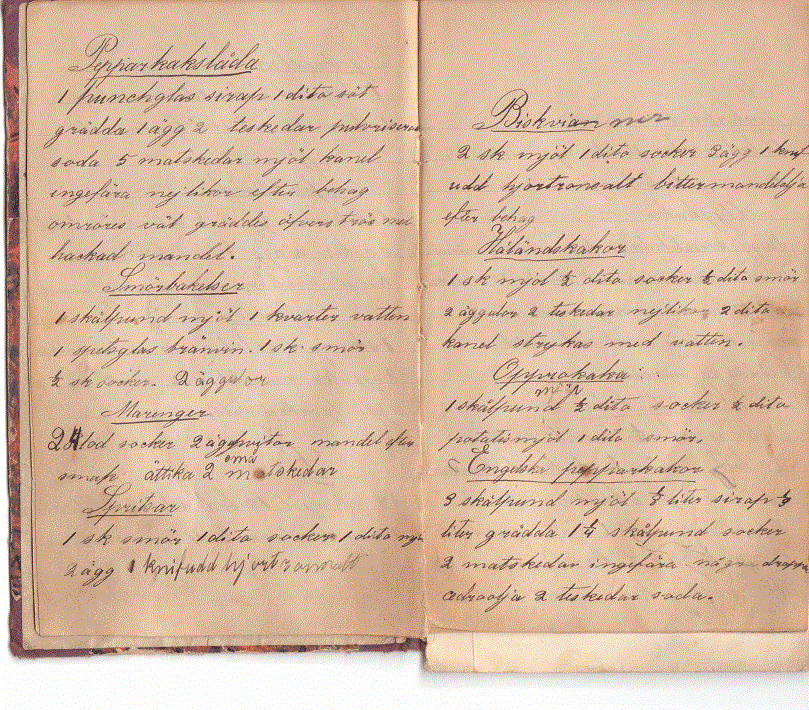 Pepparkakslåda
1 punchglas sirap 1 dito söt
grädda 1 ägg 2 teskedar pulvriserad
soda 5 matskedar mjöl kanel
ingefära nejlikor efter behag
omröres väl gräddes öfverströs med
hackad mandel.
Smörbakelser
1 skålpund mjöl 1 kvarter vatten
1 spetsglas bränvin. 1 sk. smör
½ sk socker. 2 äggulor
Marenger
24 lod socker 2 ägghvitor mandel efter
smak ättika 2 små matskedar
Spritsar
1 sk smör 1 dito socker 1 dito mjöl
2 ägg 1 knifudd hjortronsalt
Biskvianner
2 sk mjöl 1 dito socker 3 ägg 1 knif
udd hjortronsalt bittermandelolja
efter behag
Håländskakor
1 sk mjöl ½ dito socker ½ dito smör
2 äggulor 2 teskedar nejlikor 2 dito
kanel strykas med vatten.
Opprakaka
1 skålpund mjöl ½ dito socker ½ dito
potatismjöl 1 dito smör.
Engelska pepparkakor
3 skålpund mjöl liter sirap
liter grädda 1¼ skålpund socker
2 matskedar ingefära några droppar
cedroolja 2 teskedar soda.